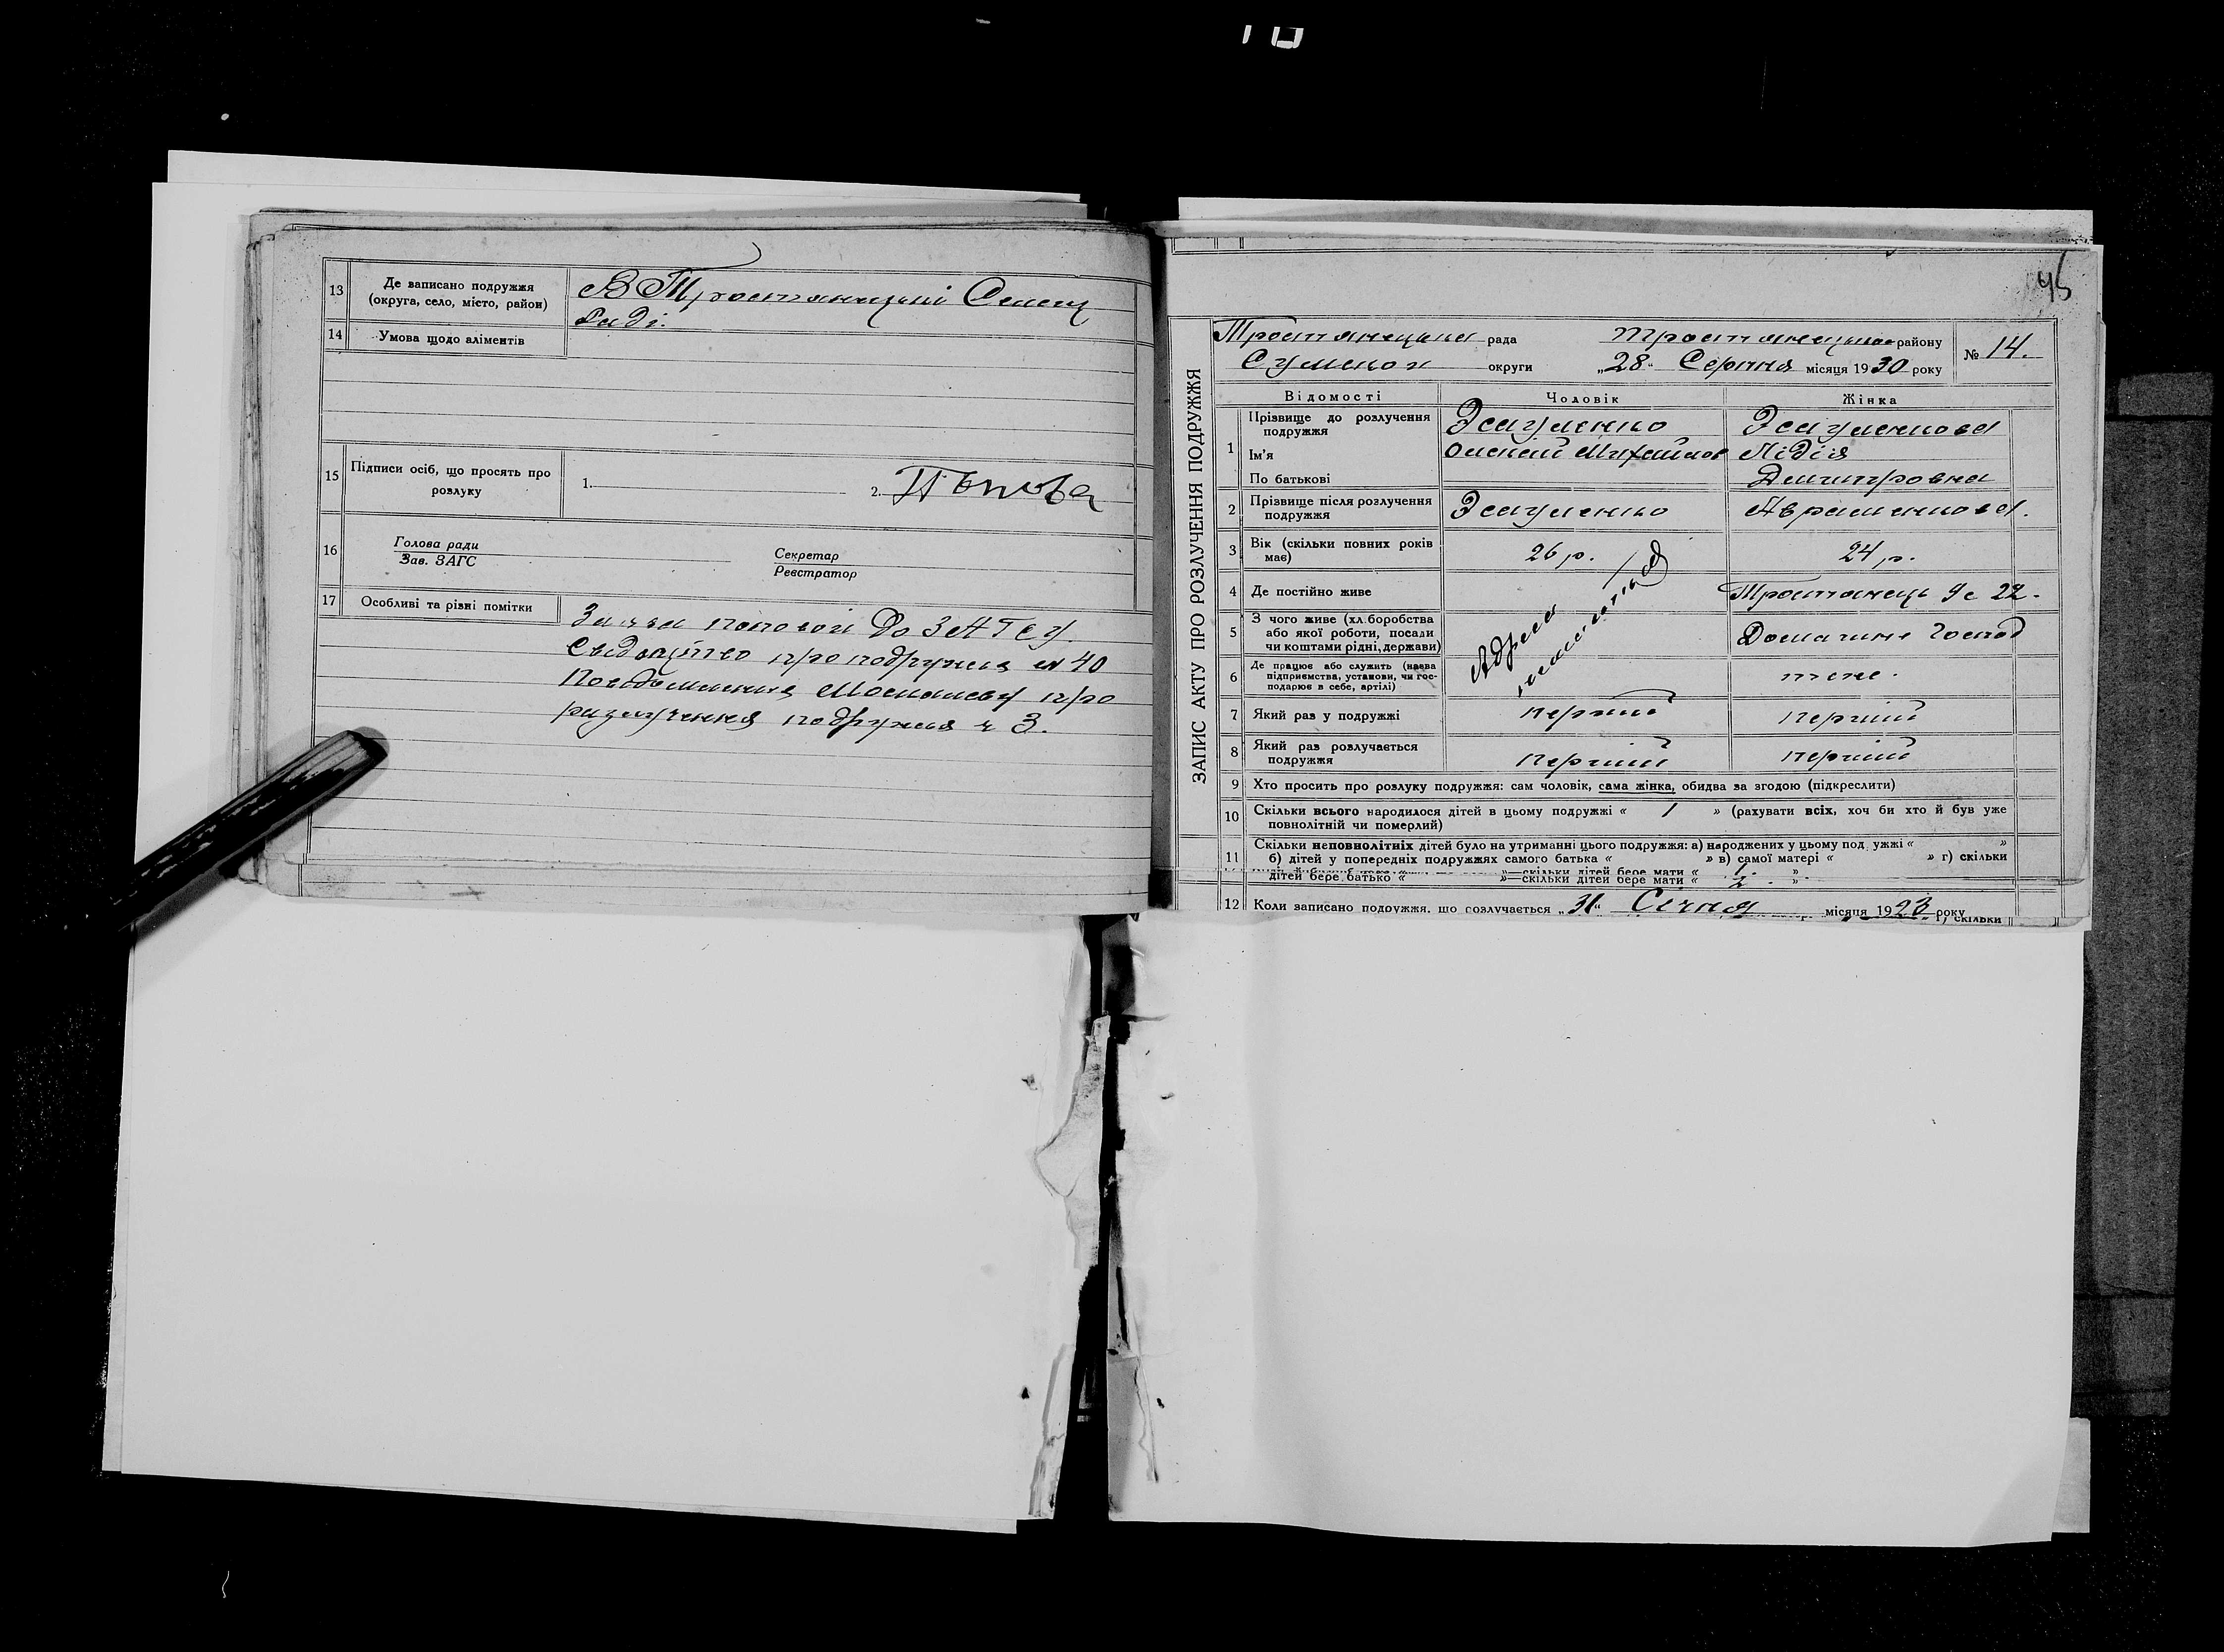 13 Де записано подружжя (округа, село, місто, район) В Тростянецькій Селищ
Раді.
14 Умова щодо аліментів
15 Підписи осіб, що просять про розлуку 1. 2.
16 Голова ради Секретар
Зав. ЗАГС Реєстратор
17 Особливі та різні помітки
Заява Попової До ЗАГСу
Свідоцтво про подружжя № 40
Повідомлення про
розлучення подружжя ч 3.
45
ЗАПИС АКТУ ПРО РОЗЛУЧЕННЯ ПОДРУЖЖЯ
Тростянецька рада Тростянецького району № 14.
Сумської округи „28“ Серпня місяця 1930 року
Відомості Чоловік Жінка
1 Прізвище до розлучення подружжя Эсауленко Эсауленкова
Ім'я Олексій Михайлов Лідія
По батькові Дмитровна
2 Прізвище після розлучення подружжя Эсауленко Авраменкова.
3 Вік (скільки повних років має) 26 р. 24 р.
4 Де постійно живе Адреса невідома Тростянець 22.
5 З чого живе (хл.боробства або якої роботи, посади чи коштами рідні, держави) Домашнє Господ
6 Де працює або служить (назва підприємства, установи, чи господарює в себе, артілі) теж.
7 Який раз у подружжі перший перший
8 Який раз розлучається подружжя перший перший
9 Хто просить про розлуку подружжя: сам чоловік, сама жінка, обидва за згодою (підкреслити)
10 Скільки всього народилося дітей в цьому подружжі « 1 » (рахувати всіх, хоч би хто й був уже
повнолітній чи померлий)
11 Скільки неповнолітніх дітей було на утриманні цього подружжя: а) народжених у цьому под ужжі « »
б) дітей у попередніх подружжях самого батька « » в) самої матері « » г) скільки
дітей бере батько « »—скільки дітей бере мати « 1. »
12 Коли записано подружжя, що розлучається „31“ Січня місяця 1923 року